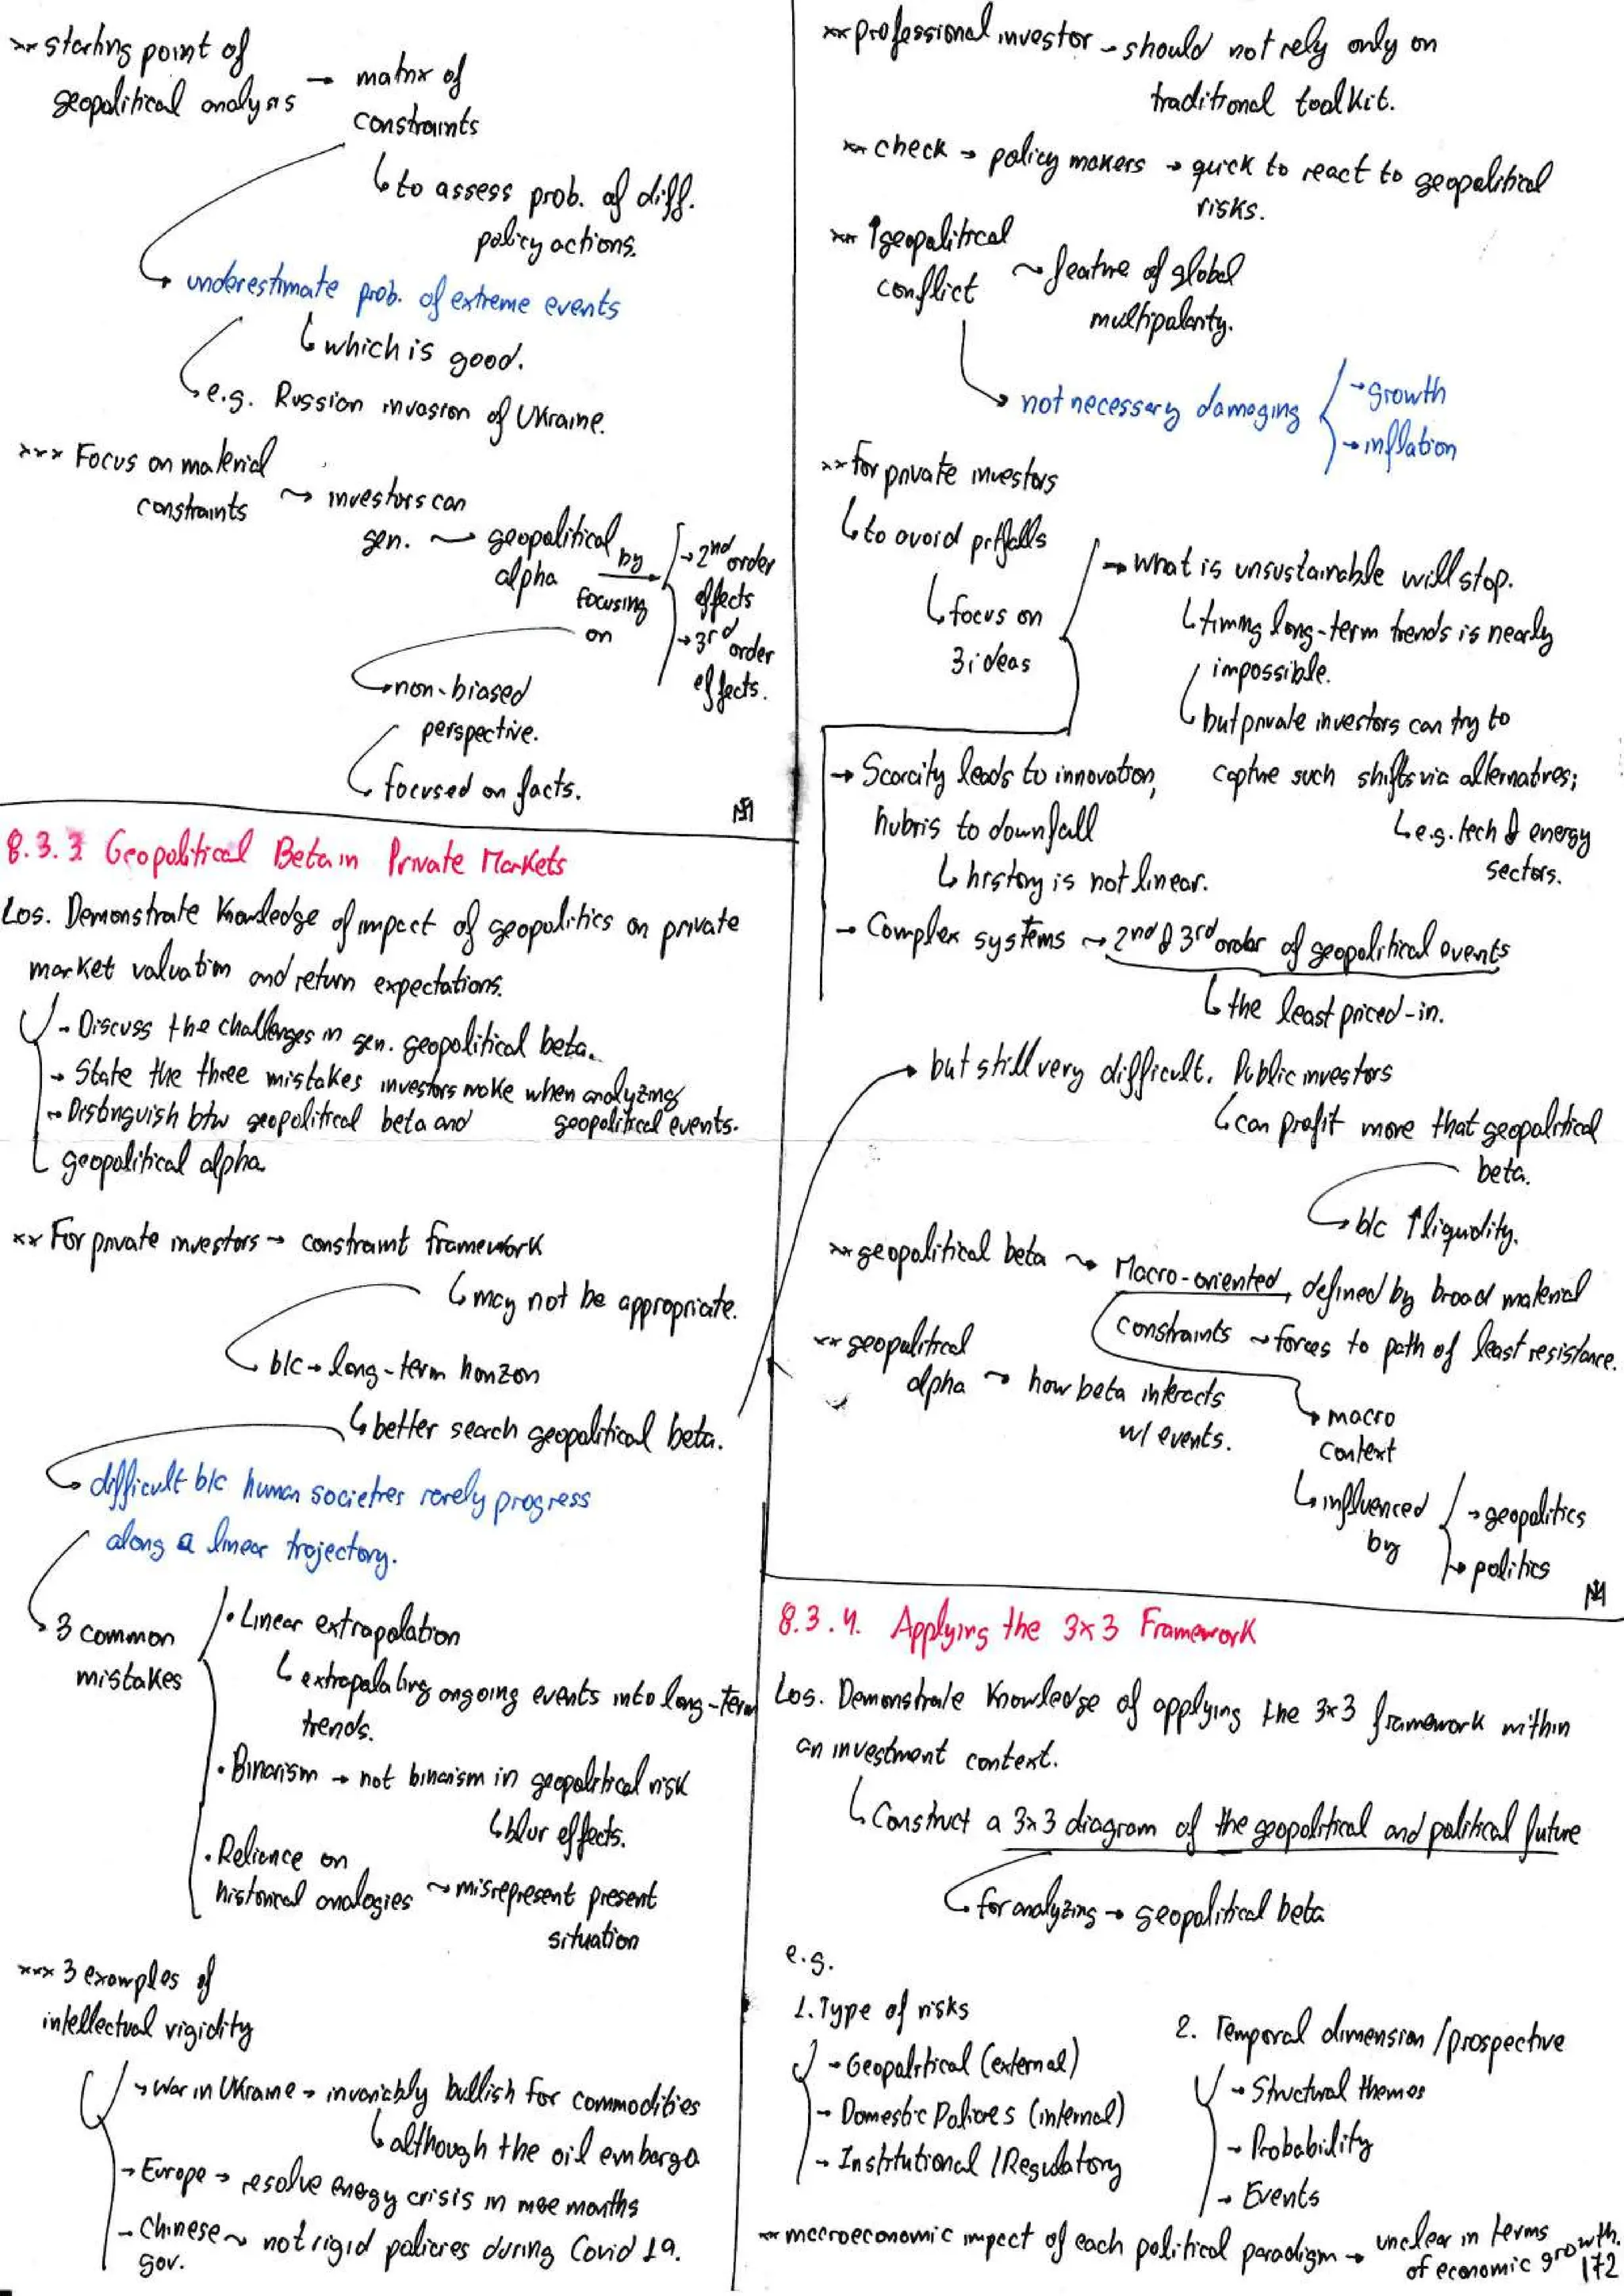 ** starting point of
geopolitical analysis → matrix of
constraints
↳ to assess prob. of diff.
policy actions.
→ underestimate prob. of extreme events
↳ which is good.
↳ e.g. Russian invasion of Ukraine.
*** Focus on material
constraints ~> investors can
gen. ~> geopolitical
alpha by
focusing
on
→ 2nd order
effects
→ 3rd order
effects.
→ non-biased
perspective.
↳ focused on facts.
8.3.3 Geopolitical Beta in Private Markets
Los. Demonstrate Knowledge of impact of geopolitics on private
market valuation and return expectations.
→ Discuss the challenges in gen. geopolitical beta.
→ State the three mistakes investors make when analyzing
geopolitical events.
→ Distinguish btw geopolitical beta and
geopolitical alpha
** For private investors → constraint framework
↳ may not be appropriate.
↳ b/c → long-term horizon
↳ better search geopolitical beta.
→ difficult b/c human societies rarely progress
along a linear trajectory.
→ 3 common
mistakes
• Linear extrapolation
↳ extrapolating ongoing events into long-term
trends.
• Binarism → not binarism in geopolitical risk
↳ blur effects.
• Reliance on
historical analogies ~> misrepresent present
situation
*** 3 examples of
intellectual rigidity
→ War in Ukraine → invariably bullish for commodities
↳ although the oil embargo
→ Europe → resolve energy crisis in mee months
→ Chinese ~> not rigid policies during Covid 19.
gov.
** professional investor → should not rely only on
traditional toolkit.
** check → policy makers → quick to react to geopolitical
risks.
** ↑geopolitical
conflict ~> feature of global
multipolarity.
→ not necessary damaging
→ growth
→ inflation
** For private investors
↳ to avoid pitfalls
↳ focus on
3 ideas
→ what is unsustainable will stop.
↳ timing long-term trends is nearly
impossible.
↳ but private investors can try to
capture such shifts via alternatives;
↳ e.g. tech & energy
sectors.
→ Scarcity leads to innovation,
hubris to downfall
↳ history is not linear.
→ Complex systems ~> 2nd & 3rd order of geopolitical events
↳ the least priced-in.
→ but still very difficult. Public investors
↳ can profit more that geopolitical
beta.
→ b/c ↑liquidity.
** geopolitical beta ~> Macro-oriented, defined by broad material
constraints ~> forces to path of least resistance.
** geopolitical
alpha ~> how beta interacts
w/ events.
→ macro
context
↳ influenced
by
→ geopolitics
→ politics
8.3.4. Applying the 3x3 Framework
Los. Demonstrate Knowledge of applying the 3x3 framework within
an investment context.
↳ Construct a 3x3 diagram of the geopolitical and political future
↳ for analyzing → geopolitical beta
e.g.
1. Type of risks
→ Geopolitical (external)
→ Domestic Policies (internal)
→ Institutional / Regulatory
2. Temporal dimension / prospective
→ Structural themes
→ Probability
→ Events
** mecroeconomic impact of each political paradigm → unclear in terms
of economic growth.
172